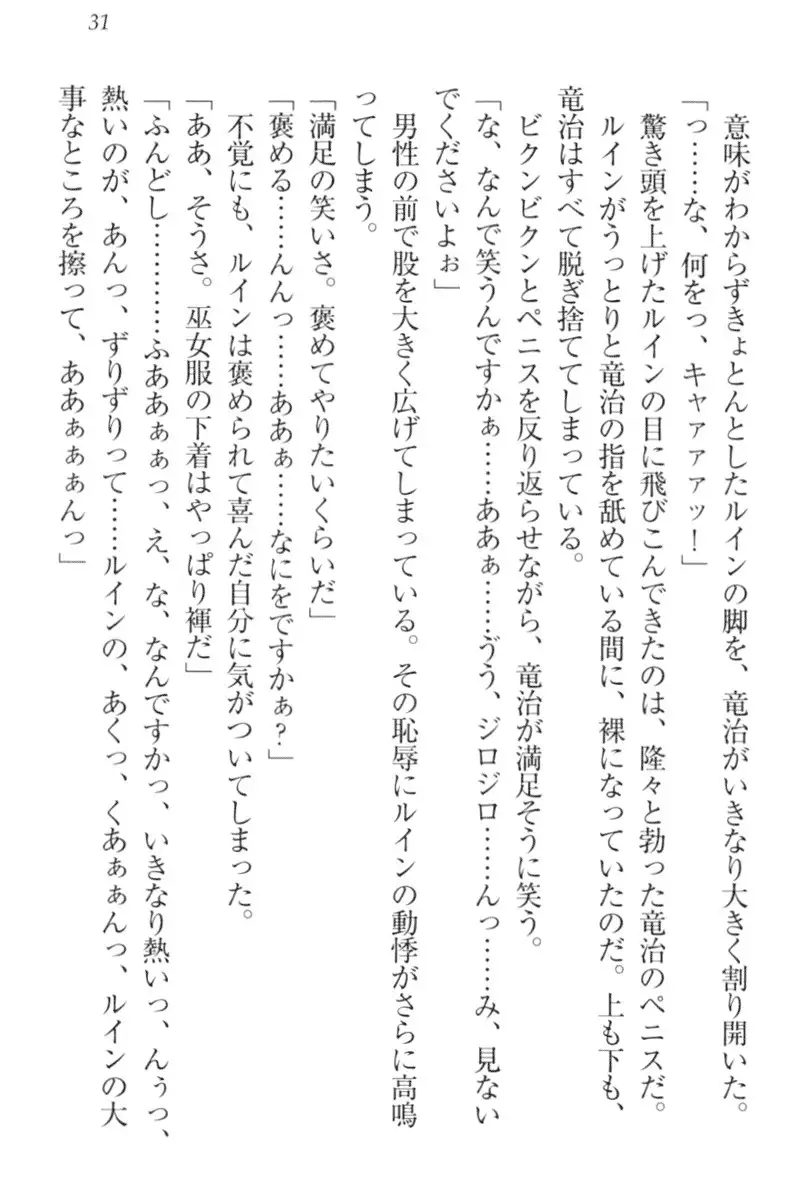 31
意味がわからずきょとんとしたルインの脚を、竜治がいきなり大きく割り開いた。
「っ……な、何をっ、キャァァァッ！」
驚き頭を上げたルインの目に飛びこんできたのは、隆々と勃った竜治のペニスだ。
ルインがうっとりと竜治の指を舐めている間に、裸になっていたのだ。上も下も、
竜治はすべて脱ぎ捨ててしまっている。
ビクンビクンとペニスを反り返らせながら、竜治が満足そうに笑う。
「な、なんで笑うんですかぁ……ああぁ……ゔう、ジロジロ……んっ……み、見ない
でくださいよぉ」
男性の前で股を大きく広げてしまっている。その恥辱にルインの動悸がさらに高鳴
ってしまう。
「満足の笑いさ。褒めてやりたいくらいだ」
「褒める……んんっ……ああぁ……なにをですかぁ？」
不覚にも、ルインは褒められて喜んだ自分に気がついてしまった。
「ああ、そうさ。巫女服の下着はやっぱり褌だ」
「ふんどし…………ふああぁぁっ、え、な、なんですかっ、いきなり熱いっ、んぅっ、
熱いのが、あんっ、ずりずりって……ルインの、あくっ、くあぁぁんっ、ルインの大
事なところを擦って、ああぁぁぁんっ」